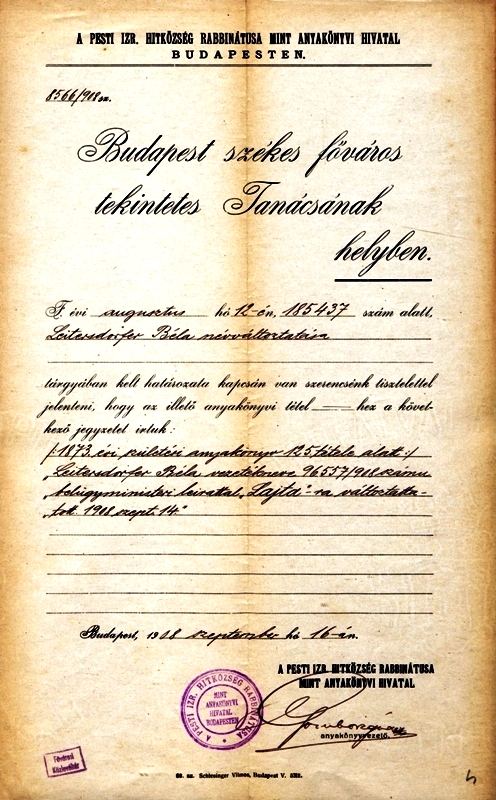 A PESTI IZR. HITKÖZSÉG RABBINÁTUSA MINT ANYAKÖNYVI HIVATAL
BUDAPESTEN.
8566/908 sz.
Budapest székes főváros
tekintetes Tanácsának
helyben.
F. évi augusztus hó 12-én, 185437 szám alatt,
Leitersdorfer Béla névváltoztatása
tárgyában kelt határozata kapcsán van szerencsénk tisztelettel
jelenteni, hogy az illető anyakönyvi tétel hez a követ-
kező jegyzetet irtuk:
/: 1873. évi születési anyakönyv 125 tétele alatt :/
„Leitersdorfer Béla vezetékneve 96557/908 számu
belügyministeri leirattal „Lajta"-ra változtatta-
tott. 1908 szept. 14."
Budapest, 1908 szeptember hó 16-án.
A PESTI IZR. HITKÖZSÉG RABBINÁTUSA
MINT ANYAKÖNYVI HIVATAL
A PESTI IZR. HITKÖZSÉG RABBINÁTUSA
MINT
ANYAKÖNYVI
HIVATAL
BUDAPESTEN
anyakönyvvezető.
Fővárosi
Levéltár
Schlesinger Vilmos, Budapest V.